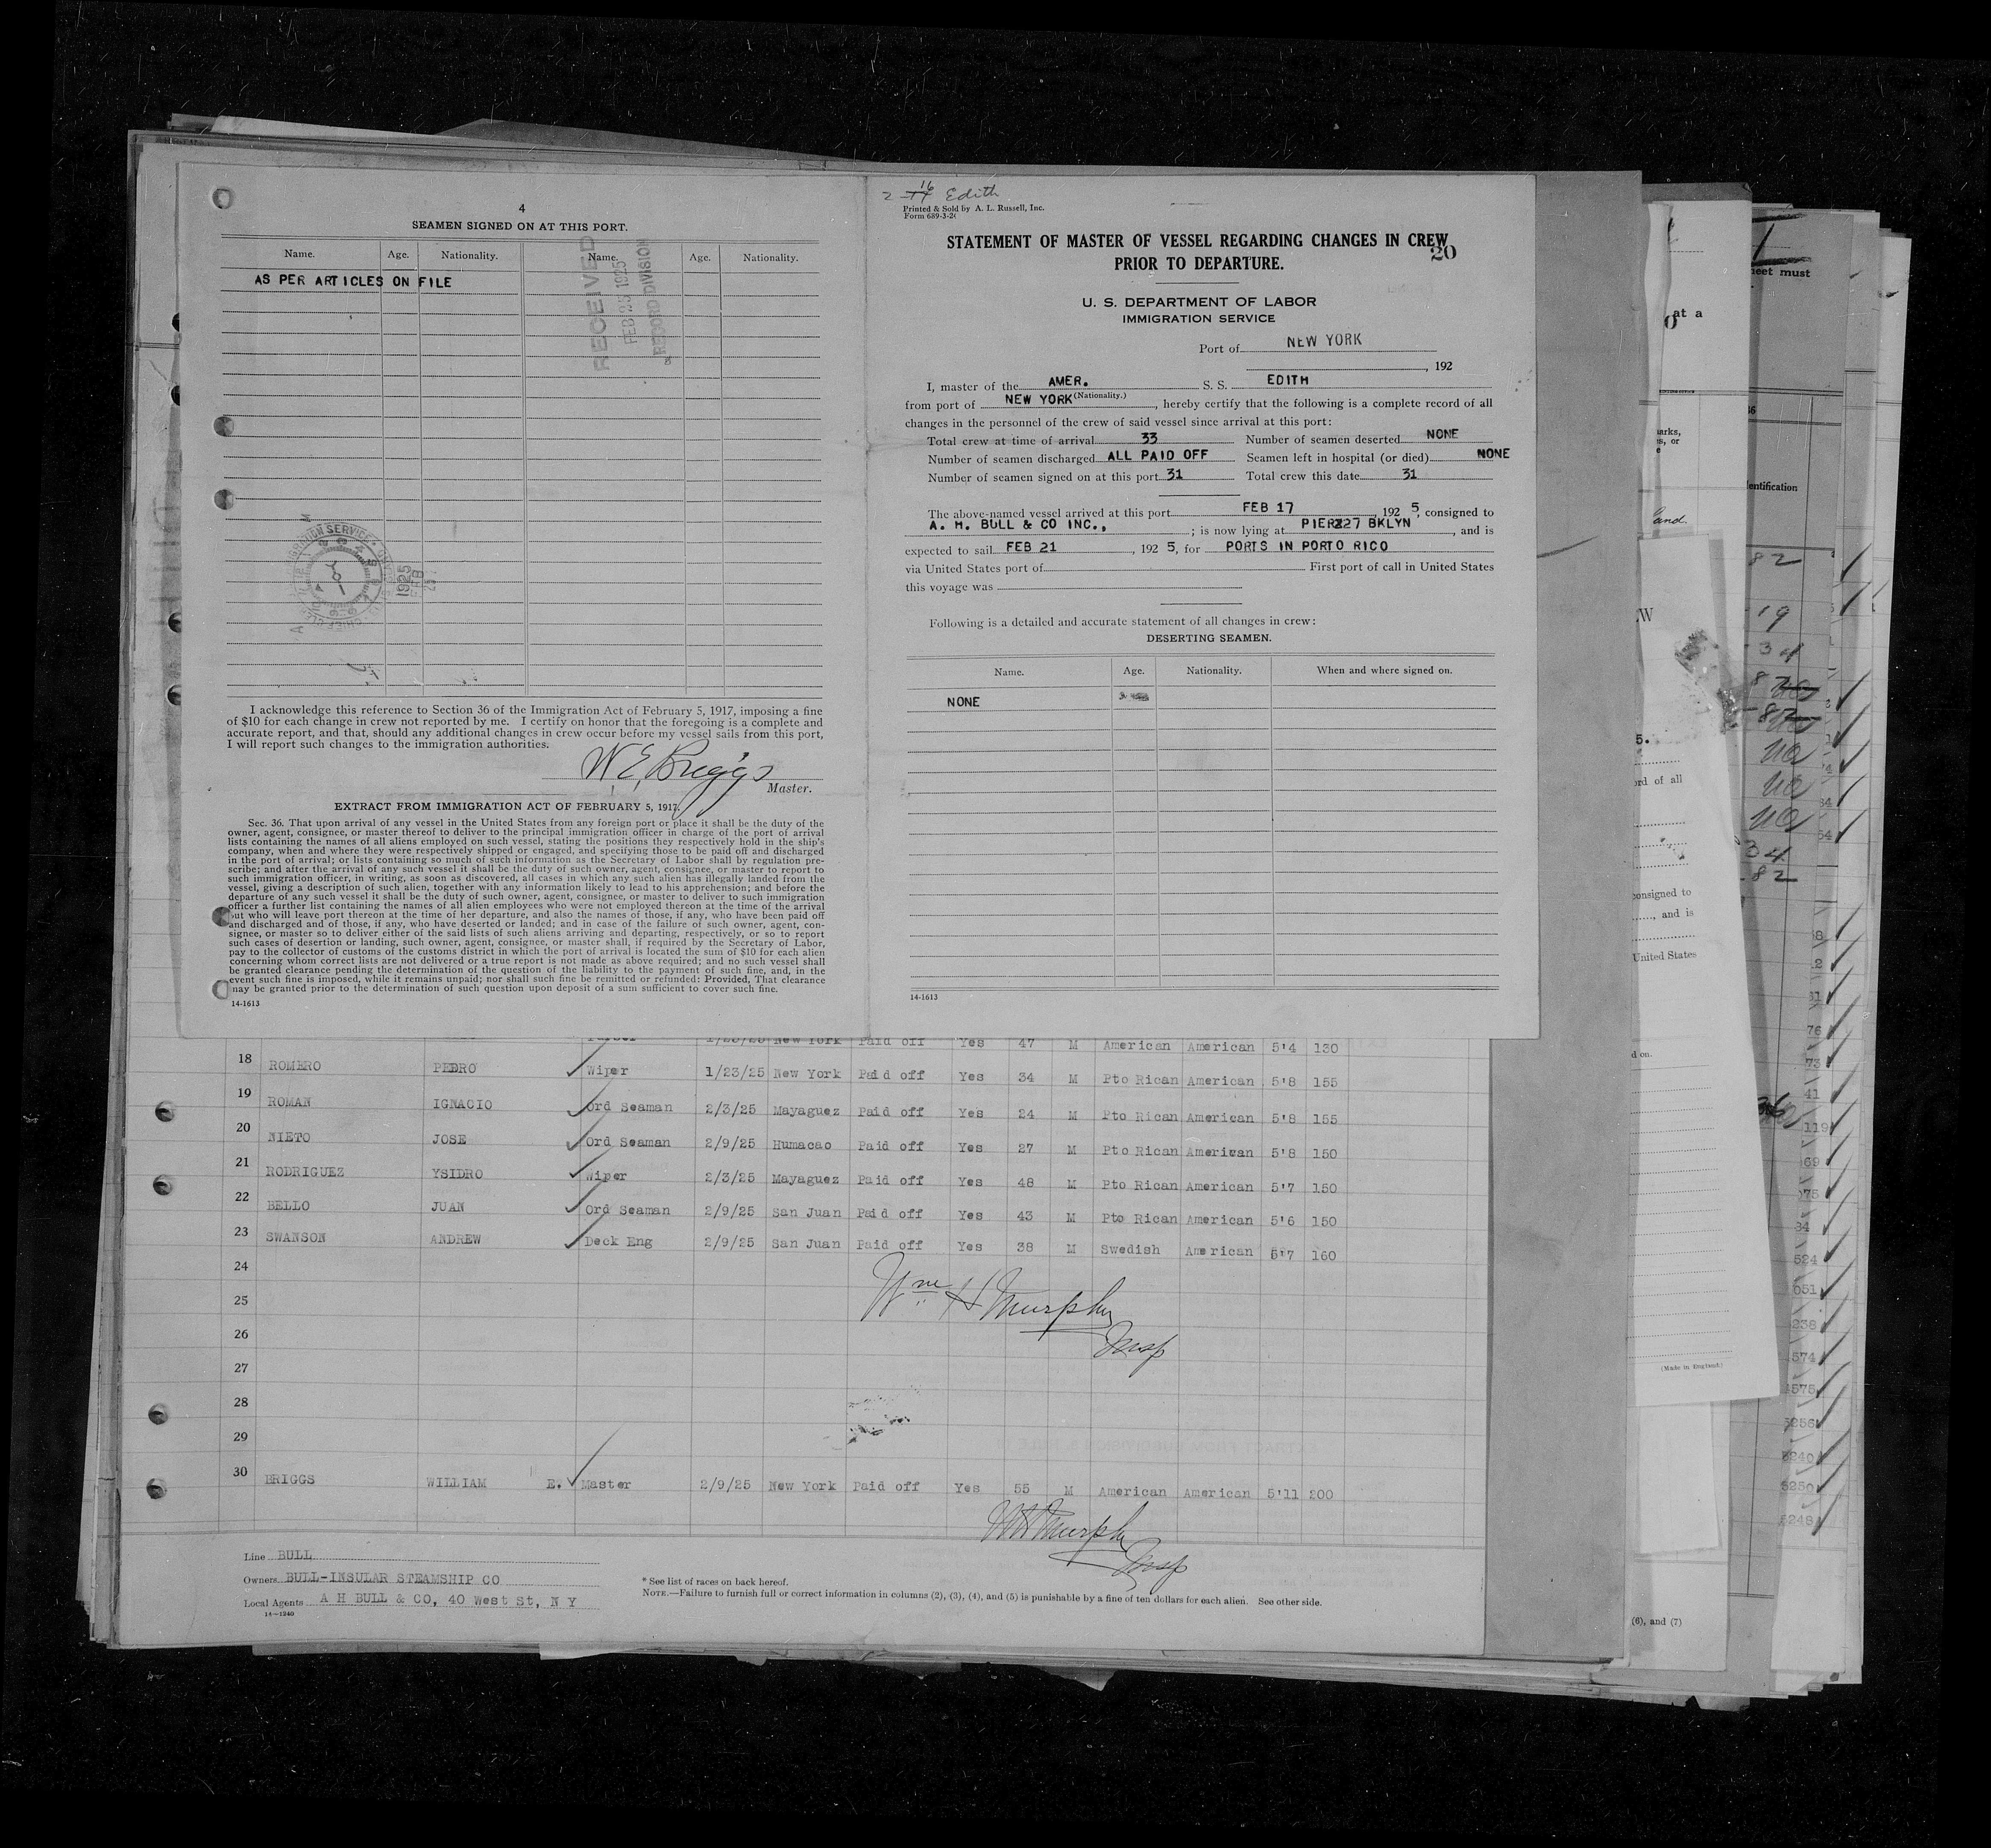 4
SEAMEN SIGNED ON AT THIS PORT.
Name. Age. Nationality. Name. Age. Nationality.
AS PER ARTICLES ON FILE
RECEIVED
FEB 1925
RECORD DIVISION
1925
FEB
I acknowledge this reference to Section 36 of the Immigration Act of February 5, 1917, imposing a fine
of $10 for each change in crew not reported by me. I certify on honor that the foregoing is a complete and
accurate report, and that, should any additional changes in crew occur before my vessel sails from this port,
I will report such changes to the immigration authorities.
W. E. Briggs
Master.
EXTRACT FROM IMMIGRATION ACT OF FEBRUARY 5, 1917.
Sec. 36. That upon arrival of any vessel in the United States from any foreign port or place it shall be the duty of the
owner, agent, consignee, or master thereof to deliver to the principal immigration officer in charge of the port of arrival
lists containing the names of all aliens employed on such vessel, stating the positions they respectively hold in the ship's
company, when and where they were respectively shipped or engaged, and specifying those to be paid off and discharged
in the port of arrival; or lists containing so much of such information as the Secretary of Labor shall by regulation pre-
scribe; and after the arrival of any such vessel it shall be the duty of such owner, agent, consignee, or master to report to
such immigration officer, in writing, as soon as discovered, all cases in which any such alien has illegally landed from the
vessel, giving a description of such alien, together with any information likely to lead to his apprehension; and before the
departure of any such vessel it shall be the duty of such owner, agent, consignee, or master to deliver to such immigration
officer a further list containing the names of all alien employees who were not employed thereon at the time of the arrival
but who will leave port thereon at the time of her departure, and also the names of those, if any, who have been paid off
and discharged and of those, if any, who have deserted or landed; and in case of the failure of such owner, agent, con-
signee, or master so to deliver either of the said lists of such aliens arriving and departing, respectively, or so to report
such cases of desertion or landing, such owner, agent, consignee, or master shall, if required by the Secretary of Labor,
pay to the collector of customs of the customs district in which the port of arrival is located the sum of $10 for each alien
concerning whom correct lists are not delivered or a true report is not made as above required; and no such vessel shall
be granted clearance pending the determination of the question of the liability to the payment of such fine, and, in the
event such fine is imposed, while it remains unpaid; nor shall such fine be remitted or refunded: Provided, That clearance
may be granted prior to the determination of such question upon deposit of a sum sufficient to cover such fine.
14-1613
2 16 Edith
Printed & Sold by A. L. Russell, Inc.
Form 689-3-2
STATEMENT OF MASTER OF VESSEL REGARDING CHANGES IN CREW
PRIOR TO DEPARTURE.
20
U. S. DEPARTMENT OF LABOR
IMMIGRATION SERVICE
Port of NEW YORK
, 192
I, master of the AMER. S. S. EDITH
(Nationality.)
from port of NEW YORK, hereby certify that the following is a complete record of all
changes in the personnel of the crew of said vessel since arrival at this port:
Total crew at time of arrival 33 Number of seamen deserted NONE
Number of seamen discharged ALL PAID OFF Seamen left in hospital (or died) NONE
Number of seamen signed on at this port 31 Total crew this date 31
The above-named vessel arrived at this port FEB 17, 192 5, consigned to
A. H. BULL & CO INC., ; is now lying at PIER 27 BKLYN, and is
expected to sail FEB 21, 192 5, for PORTS IN PORTO RICO
via United States port of First port of call in United States
this voyage was
Following is a detailed and accurate statement of all changes in crew:
DESERTING SEAMEN.
Name. Age. Nationality. When and where signed on.
NONE
14-1613
1/23/25 New York Paid off Yes 47 M American American 5'4 130
18 ROMERO PEDRO Wiper 1/23/25 New York Paid off Yes 34 M Pto Rican American 5'8 155
19 ROMAN IGNACIO Ord Seaman 2/3/25 Mayaguez Paid off Yes 24 M Pto Rican American 5'8 155
20 NIETO JOSE Ord Seaman 2/9/25 Humacao Paid off Yes 27 M Pto Rican American 5'8 150
21 RODRIGUEZ YSIDRO Wiper 2/3/25 Mayaguez Paid off Yes 48 M Pto Rican American 5'7 150
22 BELLO JUAN Ord Seaman 2/9/25 San Juan Paid off Yes 43 M Pto Rican American 5'6 150
23 SWANSON ANDREW Deck Eng 2/9/25 San Juan Paid off Yes 38 M Swedish American 5'7 160
24
Wm H Murphy
25
Insp
26
27
28
29
30 BRIGGS WILLIAM E. Master 2/9/25 New York Paid off Yes 55 M American American 5'11 200
WH Murphy
Insp
Line BULL
Owners BULL-INSULAR STEAMSHIP CO
Local Agents A H BULL & CO, 40 West St, N Y
14-1240
* See list of races on back hereof.
NOTE.—Failure to furnish full or correct information in columns (2), (3), (4), and (5) is punishable by a fine of ten dollars for each alien. See other side.
eet must
at a
entification
and.
rd of all
consigned to
, and is
United States
d on.
(Made in England.)
(6), and (7)